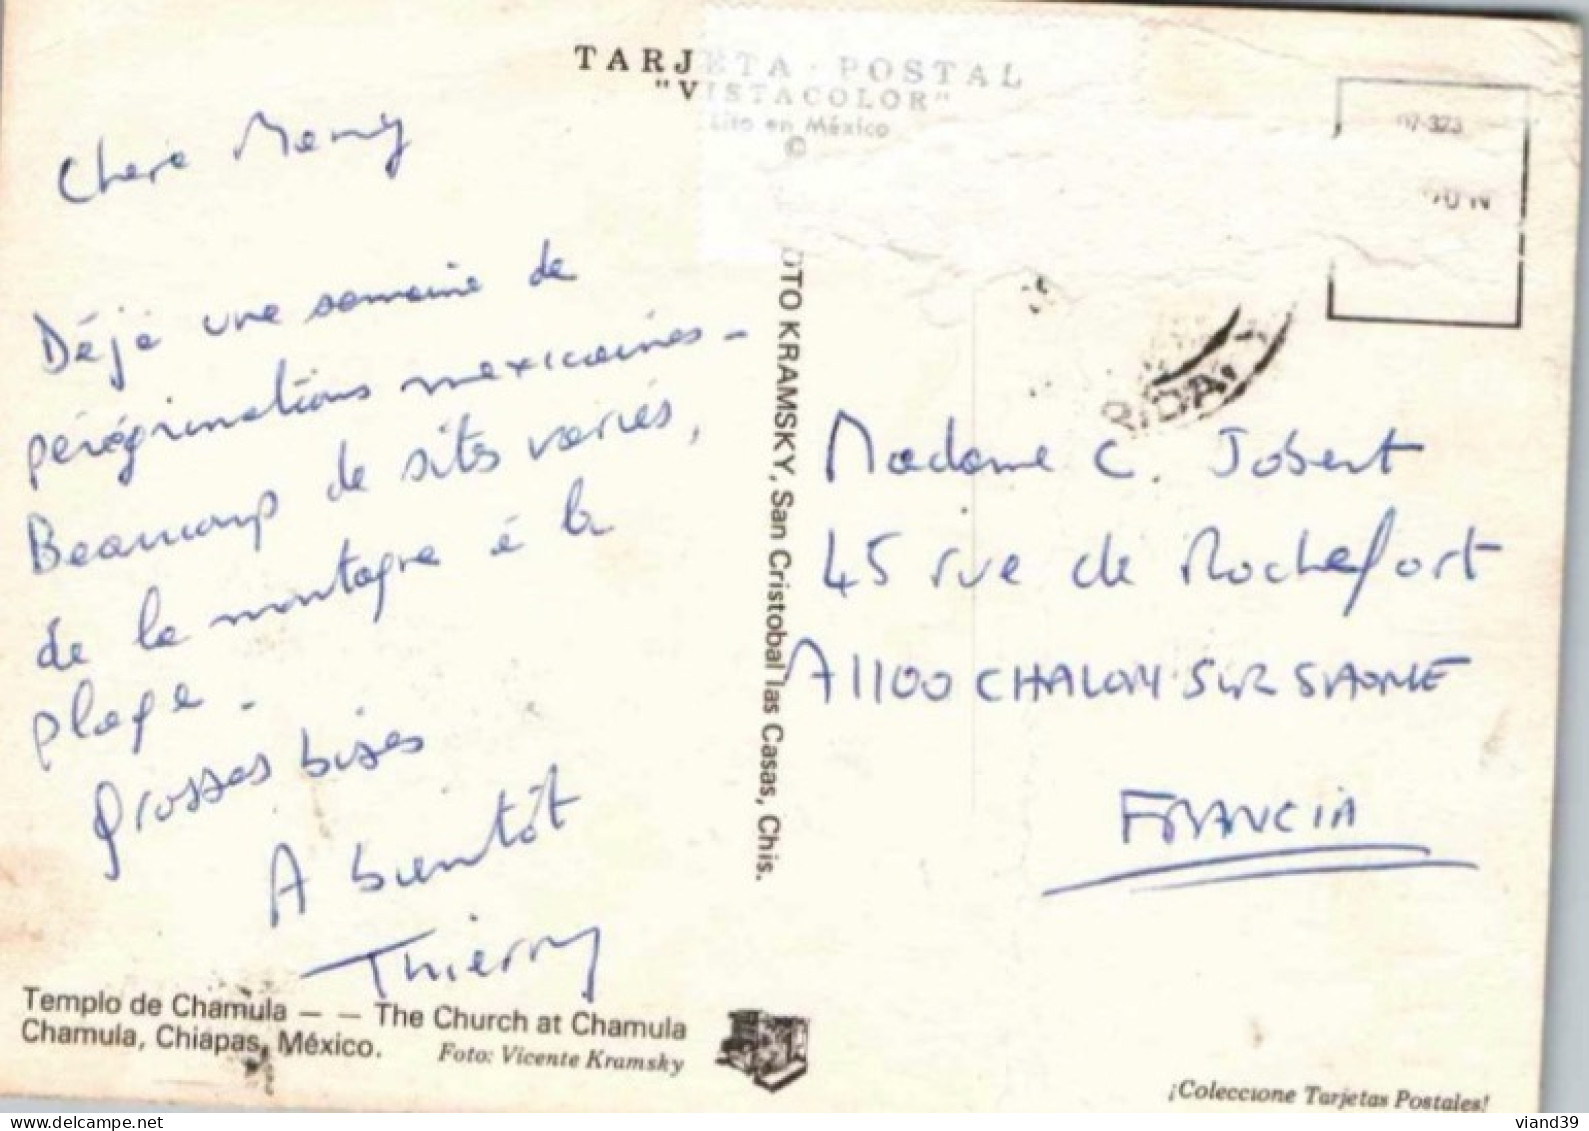 TARJETA POSTAL
"VISTACOLOR"
Lito en México
©
07-323
Chère Memy
Déjà une semaine de
pérégrinations mexicaines -
Beaucoup de sites variés,
de la montagne à la
plage -
Grosses bises
A bientôt
Thierry
FOTO KRAMSKY, San Cristobal las Casas, Chis.
Madame C. Jobert
45 rue de Rochefort
71100 CHALON SUR SAONE
FRANCIA
Templo de Chamula — — The Church at Chamula
Chamula, Chiapas, México.
Foto: Vicente Kramsky
¡Coleccione Tarjetas Postales!
viand39